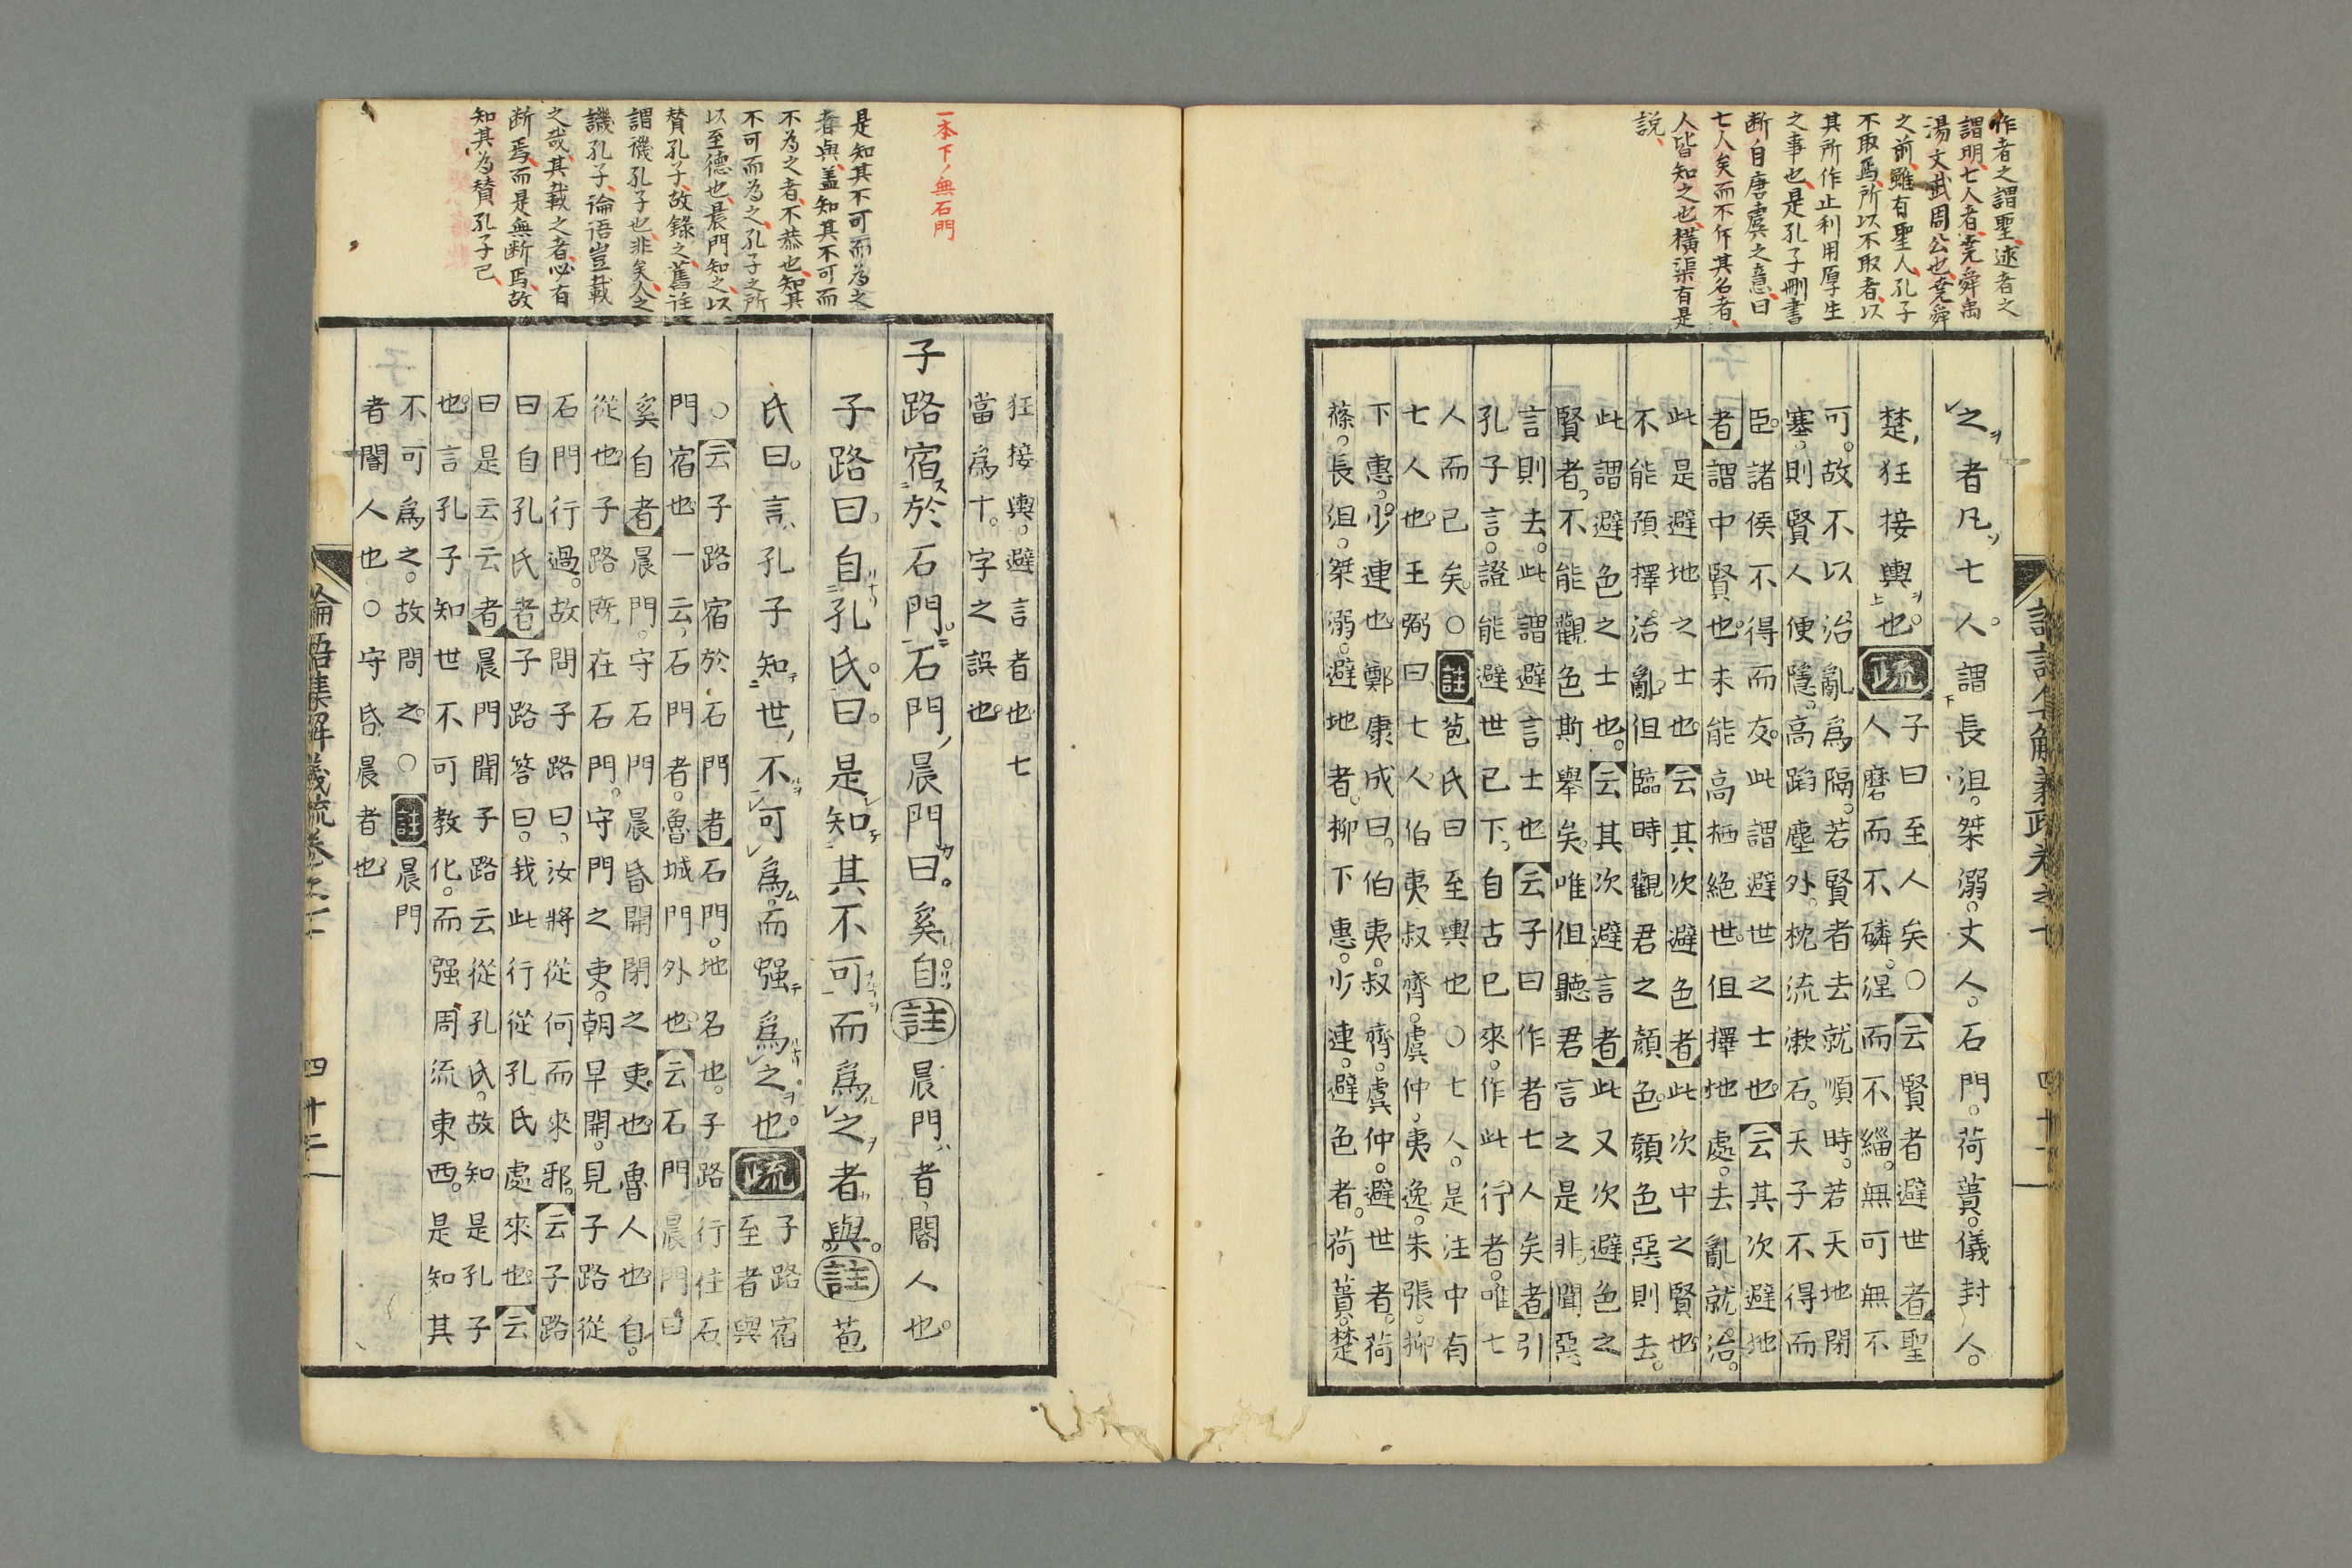 作者之謂聖述者之
謂明七人者堯舜禹
湯文武周公也堯舜
之前雖有聖人孔子
不取焉所以不取者以
其所作止利用厚生
之事也是孔子刪書
断自唐虞之意曰
七人矣而不斥其名者
人皆知之也橫渠有是
説
之者凡七人謂長沮桀溺丈人石門荷蕢儀封人
楚狂接輿也疏
子曰至人矣○云賢者避世者聖
人磨而不磷涅而不緇無可無不
可故不以治亂爲隔若賢者去就順時若天地閉
塞則賢人便隱高蹈塵外枕流漱石天子不得而
臣諸侯不得而友此謂避世之士也云其次避地
者謂中賢也未能高栖絕世但擇地處去亂就治
此是避地之士也云其次避色者此次中之賢也
不能預擇治亂但臨時觀君之顏色顏色惡則去
此謂避色之士也云其次避言者此又次避色之
賢者不能觀色斯舉矣唯但聽君言之是非聞惡
言則去此謂避言士也云子曰作者七人矣者引
孔子言證能避世已下自古已來作此行者唯七
人而已矣○註苞氏曰至輿也○七人是注中有
七人也王弼曰七人伯夷叔齊虞仲夷逸朱張柳
下惠少連也鄭康成曰伯夷叔齊虞仲避世者荷
蓧長沮桀溺避地者柳下惠少連避色者荷蕢楚
論語集解義疏卷之七
一本下ノ無石門
是知其不可而為之
者與蓋知其不可而
不為之者不恭也知其
不可而為之孔子之所
以至德也晨門知之以
賛孔子故錄之舊註
謂禨孔子也非矣人之
譏孔子論語豈載
之哉其載之者必有
断焉而是無断焉故
知其為賛孔子已
狂接輿避言者也七
當爲十字之誤也
子路宿於石門石門晨門曰奚自註晨門者閽人也
子路曰自孔氏曰是知其不可而爲之者與註苞
氏曰言孔子知世不可爲而强爲之也疏
子路宿
至者與
○云子路宿於石門者石門地名也子路行住石
門宿也一云石門者魯城門外也云石門晨門曰
奚自者晨門守石門晨昏開閉之吏也魯人也自
從也子路既在石門守門之吏朝早開見子路從
石門行過故問子路曰汝將從何而來邪云子路
曰自孔氏者子路答曰我此行從孔氏處來也云
曰是云云者晨門聞子路云從孔氏故知是孔子
也言孔子知世不可教化而强周流東西是知其
不可爲之故問之○註晨門
者閽人也○守昏晨者也
論語集解義疏卷之七
四十二